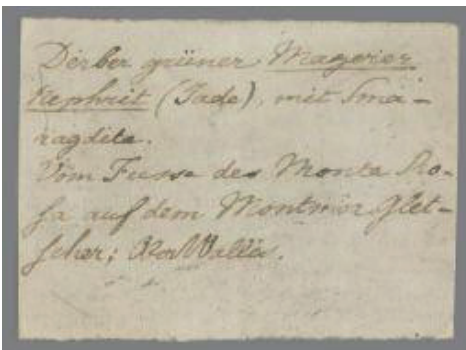 Derber grüner Magerer
Nephrit (Jade), mit Sma-
ragdite.
Vom Fusse des Monte Ro-
sa auf dem Glet-
scher;